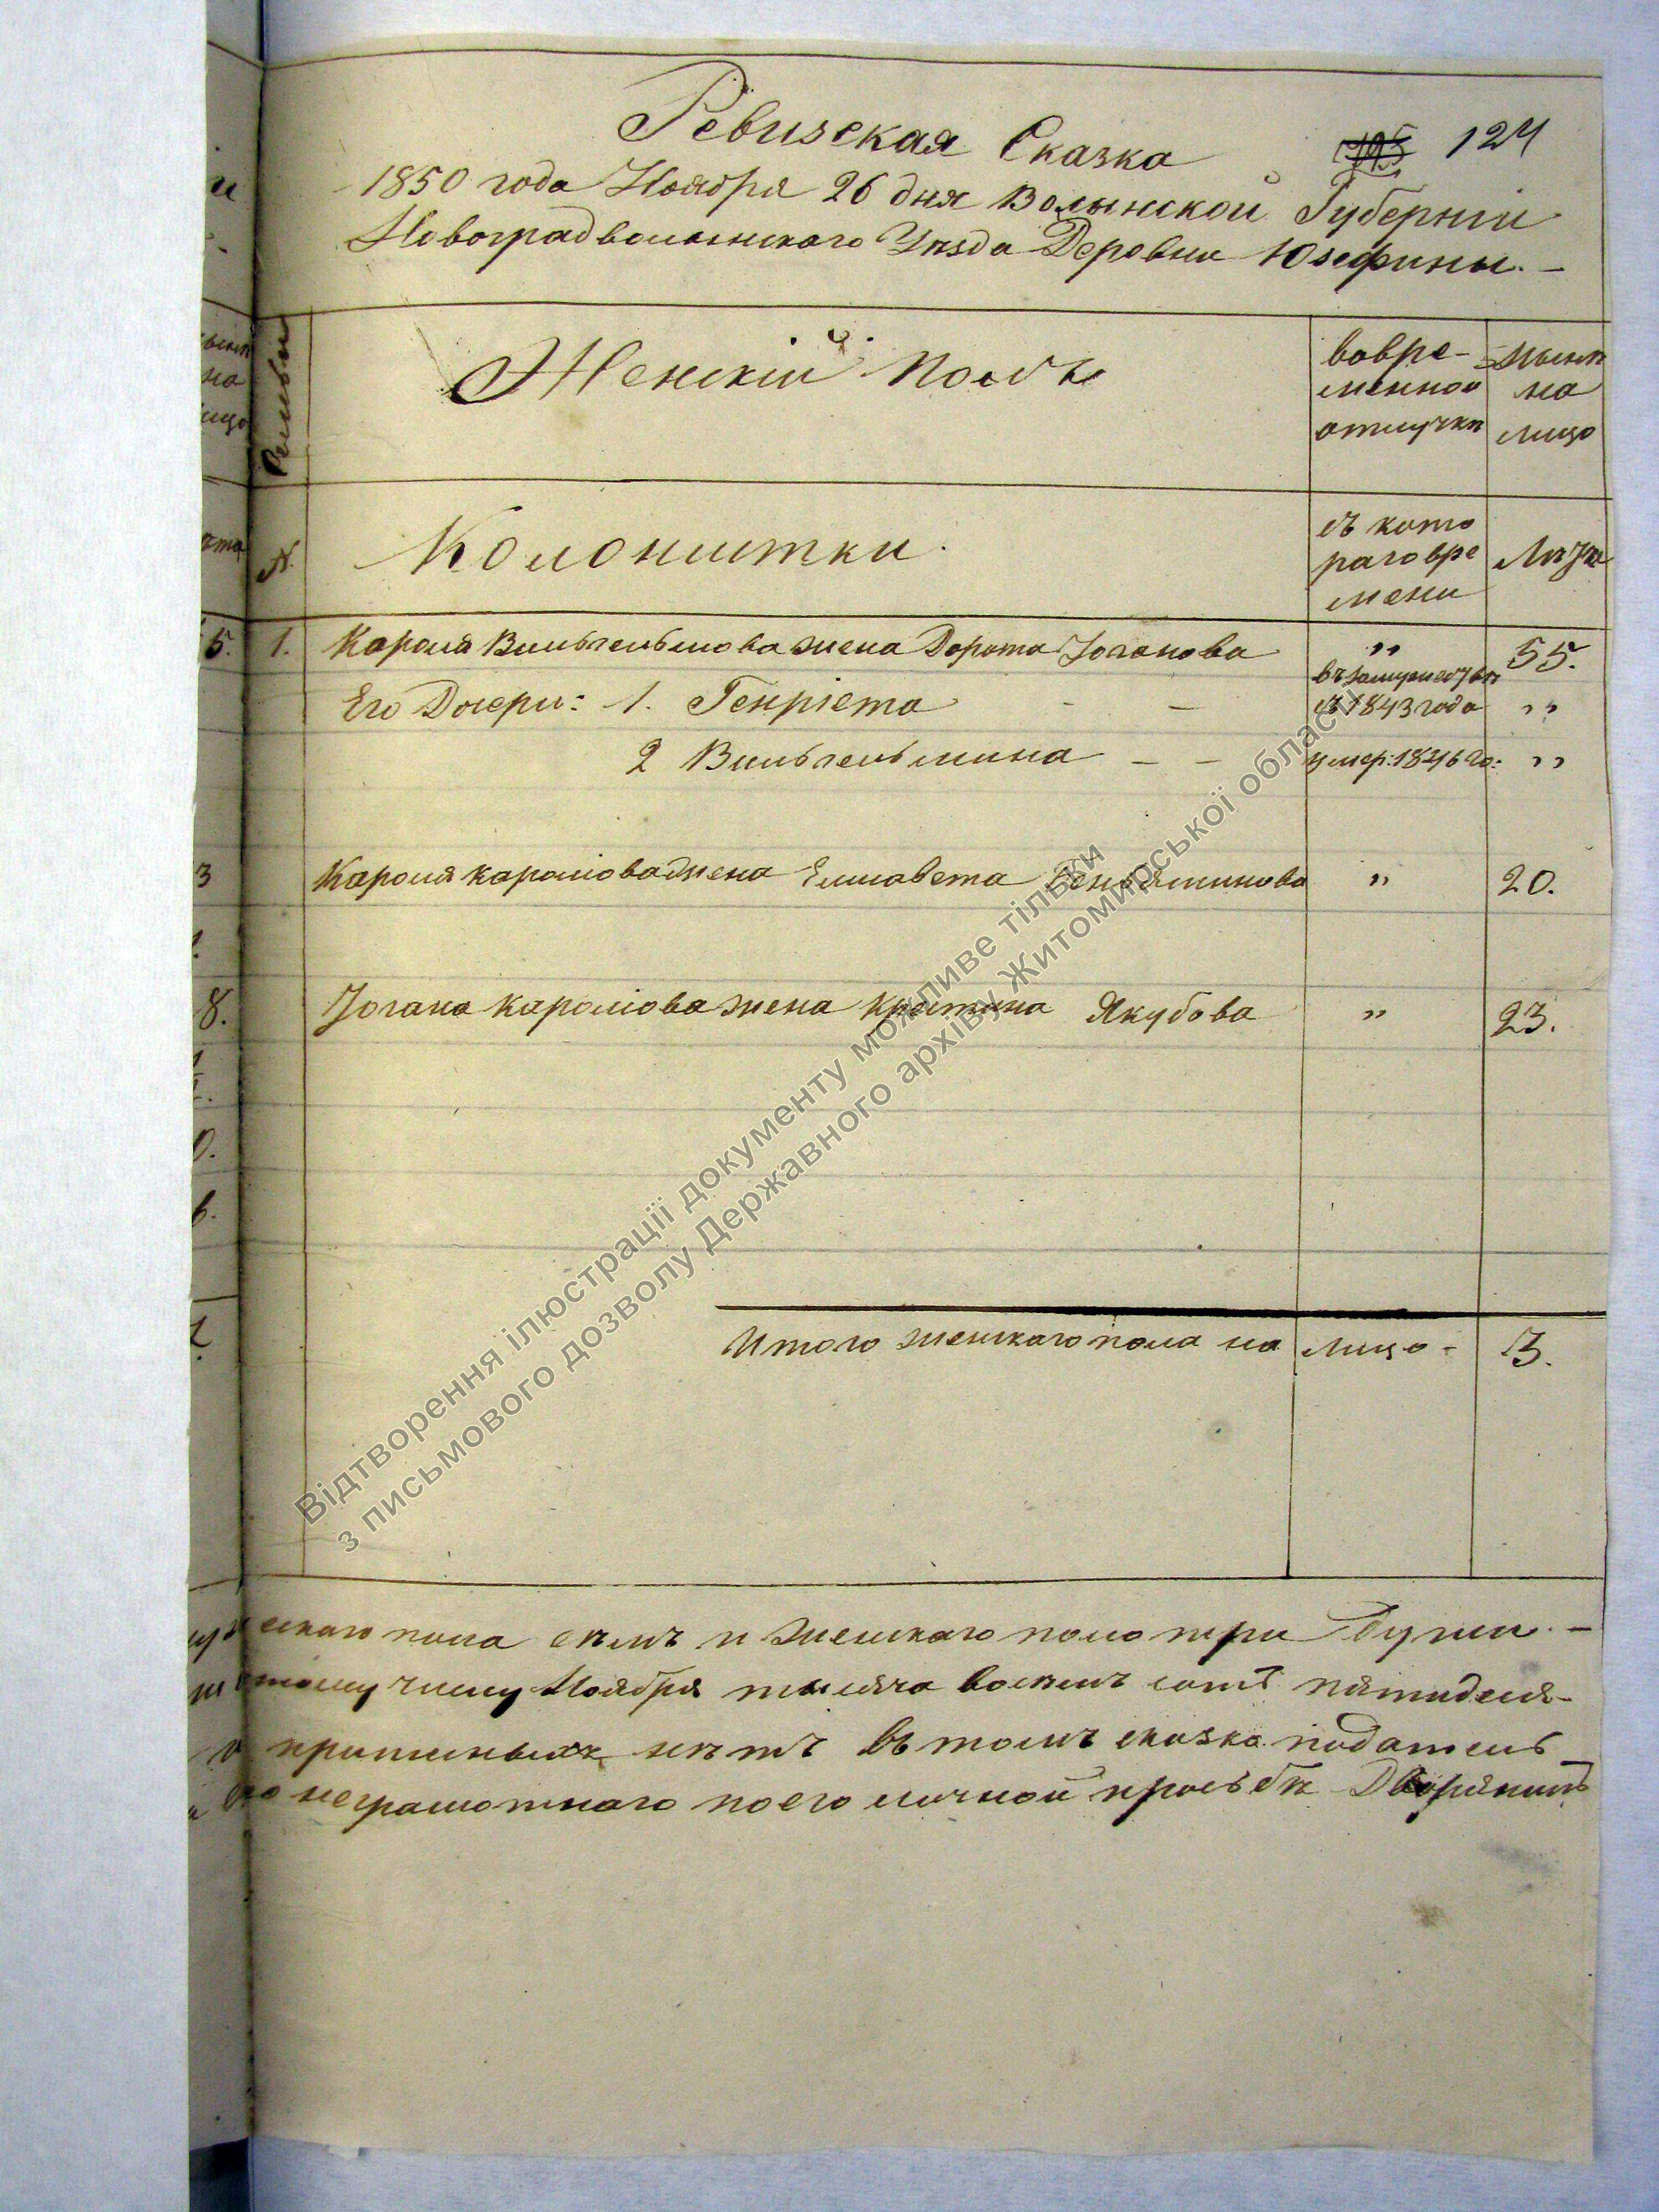 Ревизская Сказка
124
1850 года Ноября 26 дня Волынской Губерніи
Новоградволынскаго Уѣзда Деревни Юзефины. —
Женскій Полъ
вовре-
менной
отлучкѣ
нынѣ
на
лицо
Колонистки.
съ кото
раго вре
мени
Лѣта
№
5. 1. Кароля Вильгельмова жена Дорота Іоганова „ 55.
Его Дочери: 1. Генріета — — въ замужествѣ съ 1843 года „
2 Вильгельмина — — умер: 1846 го: „
3 Кароля каролюва жена Елисавета Бенъяминова „ 20.
8. Іогана каролюва жена Кристина Якубова „ 23.
0.
6.
Итого женскаго пола на лицо - 3.
ескаго пола семъ и женскаго пола три души. —
тому числу Ноября тысяча восемъ сотъ пятидеся-
нѣтъ въ томъ сказка податель
неграмотнаго по его личной прозьбѣ Дворянинъ
Відтворення ілюстрації документу можливе тільки
з письмового дозволу Державного архіву Житомирської області